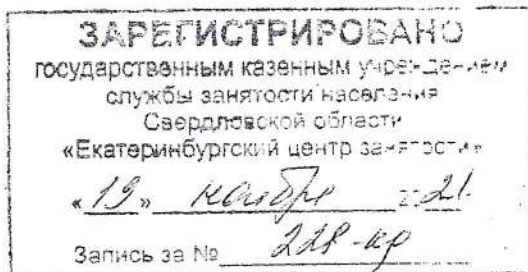 ЗАРЕГИСТРИРОВАНО
государственным казенным учреждением
службы занятости населения
Свердловской области
«Екатеринбургский центр занятости»
«19» ноября 2021
Запись за № 228-кр